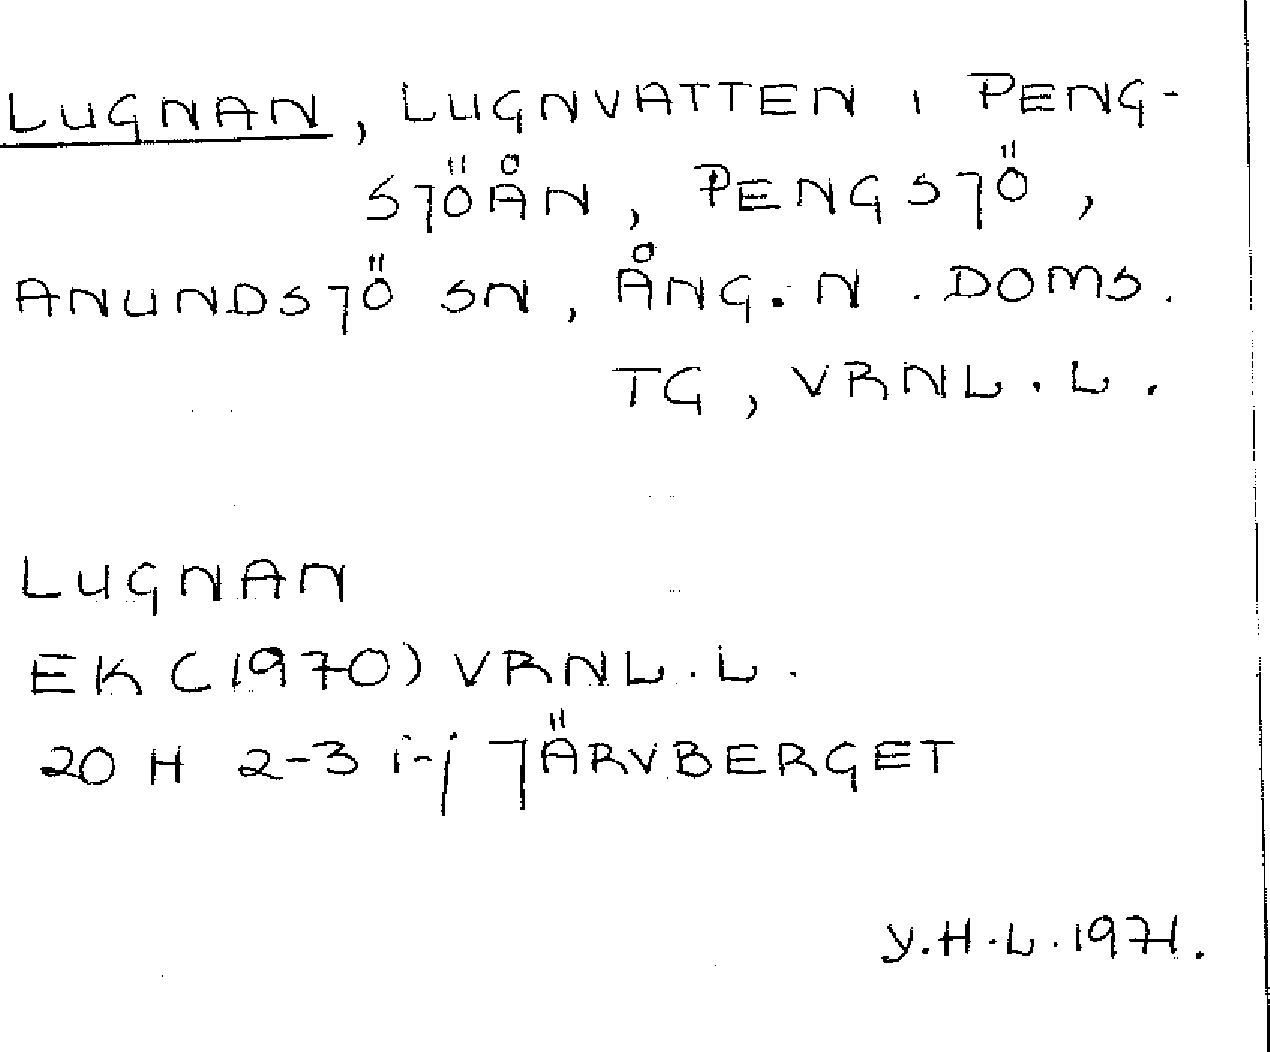 LUGNAN, LUGNVATTEN I PENG-
SJÖÅN, PENGSJÖ,
ANUNDSJÖ SN, ÅNG. N. DOMS.
TG, VRNL. L.
LUGNAN
EK (1970) VRNL. L.
20 H 2-3 i-j JÄRVBERGET
Y.H.L. 1971.